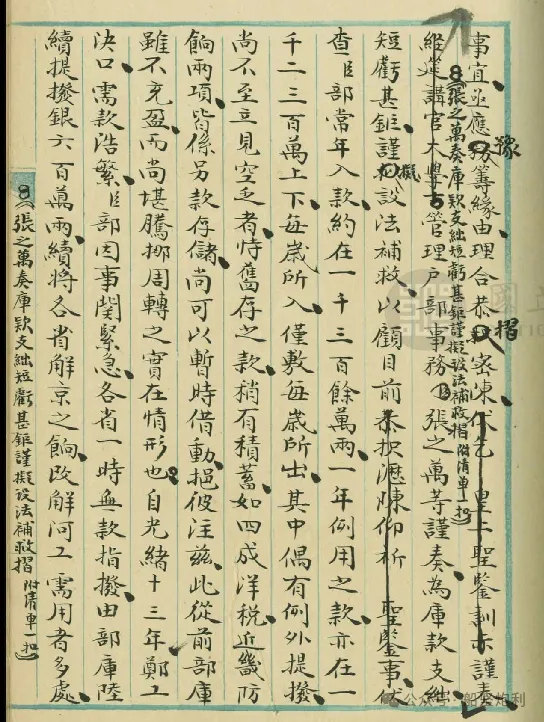 事宜亟應豫籌緣由理合恭摺密陳伏乞皇上聖鑒訓示謹奏
8(張之萬奏庫款支絀短虧甚鉅謹擬設法補救摺 附清單一扣)
經筵講官大學士管理戶部事務臣張之萬等謹奏為庫款支絀
短虧甚鉅謹擬設法補救以顧目前恭摺瀝陳仰祈 聖鑒事伏
查臣部常年入款約在一千三百餘萬兩一年例用之款亦在一
千二三百萬上下每歲所入僅敷每歲所出其中偶有例外提撥
尚不至立見空乏者恃舊存之款稍有積蓄如四成洋稅近畿防
餉兩項皆係另款存儲尚可以暫時借動挹彼注茲此從前部庫
雖不充盈而尚堪騰挪周轉之實在情形也自光緒十三年鄭工
決口需款浩繁臣部因事關緊急各省一時無款指撥由部庫陸
續提撥銀六百萬兩續將各省解京之餉改解河工需用者多處
8(張之萬奏庫款支絀短虧甚鉅謹擬設法補救摺 附清單一扣)
公众号·船坚炮利